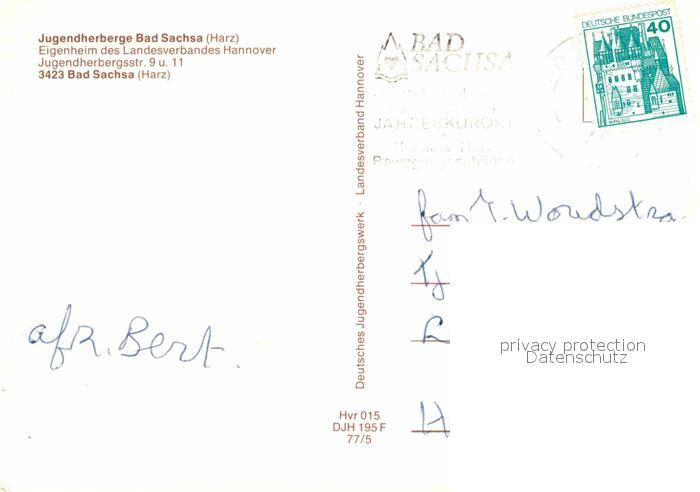 Jugendherberge Bad Sachsa (Harz)
Eigenheim des Landesverbandes Hannover
Jugendherbergsstr. 9 u. 11
3423 Bad Sachsa (Harz)
afz. Bert.
Deutsches Jugendherbergswerk · Landesverband Hannover
Hvr 015
DJH 195 F
77/5
BAD
SACHSA
JAHRESKURORT
DEUTSCHE BUNDESPOST
40
fam Y. Woudstra.
H
privacy protection
Datenschutz